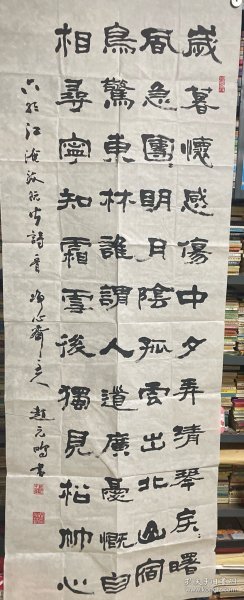 歲暮懷感傷中夕弄清琴戾〻曙
風急團〻明月陰孤雲出北山宿
鳥驚東林誰謂人道廣憂慨自
相尋寧知霜雪後獨見松竹心
六朝江淹效阮 詩 心齋主人 趙元鳴書